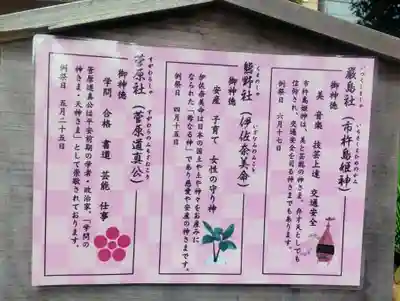 いつくしましゃ
厳島社（市杵島姫神）
いちきしまひめのかみ
御神徳
美 音楽 技芸上達 交通安全
市杵島姫神は、美と芸能の神さま。弁才天としても
信仰され、交通安全を司る神さまでもあります。
例祭日 六月十七日
くまのしゃ
熊野社（伊佐奈美命）
いざなみのみこと
御神徳
安産 子育て 女性の守り神
伊佐奈美命は日本の国土や山や神々をお産みに
なった「母なる神」であり慈愛や安産の神さまです。
例祭日 四月十五日
すがわらしゃ
菅原社（菅原道真公）
すがわらのみちざねこう
御神徳
学問 合格 書道 芸能 仕事
菅原道真公は平安前期の学者・政治家。「学問の
神さま・天神さま」として崇敬されております。
例祭日 五月二十五日